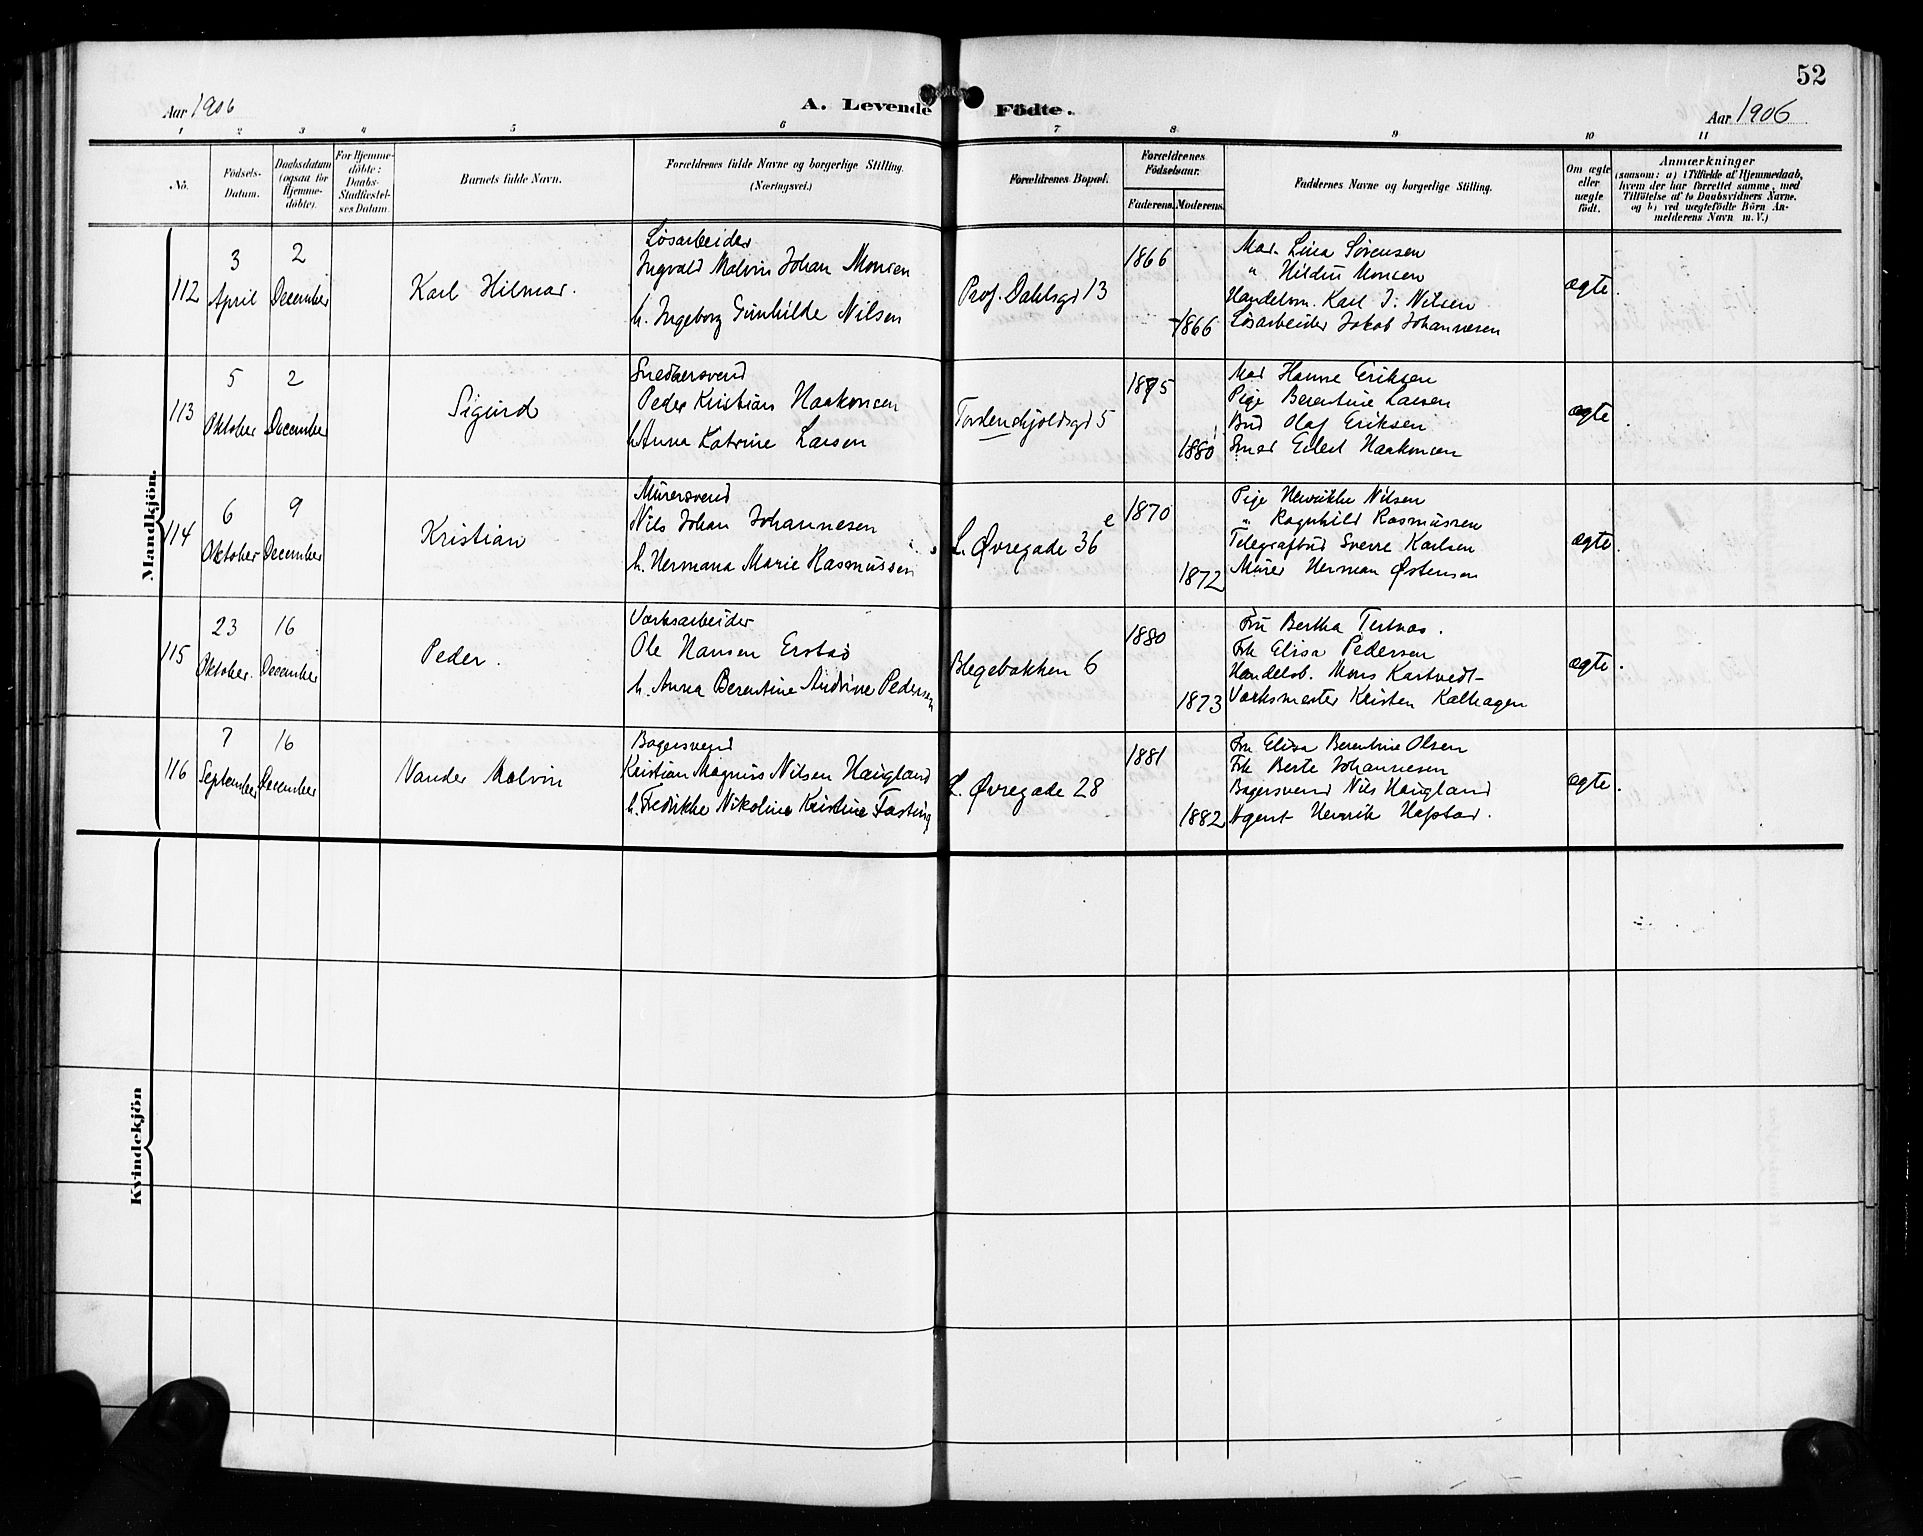 52
Aar 1906
A. Levende Födte.
Aar 1906
1 2 3 4 5 6 7 8 9 10 11
No.
Födsels-Datum.
Daabsdatum (ogsaa for Hjemme-döbte).
For Hjemme-döbte: Daabs-Stadfæstel-ses Datum.
Barnets fulde Navn.
Forældrenes fulde Navne og borgerlige Stilling.
(Næringsvei.)
Forældrenes Bopæl.
Forældrenes Födselsaar.
Faderens. Moderens.
Faddernes Navne og borgerlige Stilling.
Om ægte eller uægte födt.
Anmærkninger
(saasom: a) i Tilfælde af Hjemmedaab,
hvem der har forrettet samme, med
Tilföielse af to Daabsvidners Navne,
og b) ved uægtefödte Börn An-
melderens Navn m. V.)
Mandkjön.
112
3 April
2 December
Karl Hilmar.
Løsarbeider
Ingvald Malvin Johan Monsen
h. Ingeborg Gunhilde Nilsen
Prof. Dahlsgd 13
1866
1866
Mad. Lina Sørensen
" Hildur Monsen
Handelsm. Karl J. Nilsen
Løsarbeider Jakob Johannesen
ægte.
113
5 Oktober
2 December
Sigurd
Snedkersvend
Peder Kristian Haakonsen
h. Anna Katrine Larsen
Tordenskjoldsgd 5
1875
1880
Mad Hanne Eriksen
Pige Berentine Larsen
Bud Olaf Eriksen
Smed Eilert Haakonsen
ægte.
114
6 Oktober
9 December
Kristian
Murersvend
Nils Johan Johannesen
h. Hermana Marie Rasmussen
L. Øvregade 36 e
1870
1872
Pige Henrikke Nilsen
" Ragnhild Rasmussen
Telegrafbud Sverre Karlsen
Murer Herman Østensen
ægte.
115
23 Oktober.
16 December
Peder.
Værksarbeider
Ole Hansen Erstad
h. Anna Berentine Andrine Pedersen
Blegebakken 6
1880
1873
Fru Bertha Tertnæs.
Frk Elisa Pedersen
Handelsb. Mons Kartvedt
Værksmester Kristen Kalhagen
ægte.
116
7 September
16 December
Vander Malvin
Bagersvend
Kristian Magnus Nilsen Haugland
h. Fredrikke Nikoline Kristine Fasting
L. Øvregade 28
1881
1882
Fru Elisa Berentine Olsen
Frk Berte Johannesen
Bagersvend Nils Haugland
Agent Henrik Hofstad.
ægte.
Kvindekjön